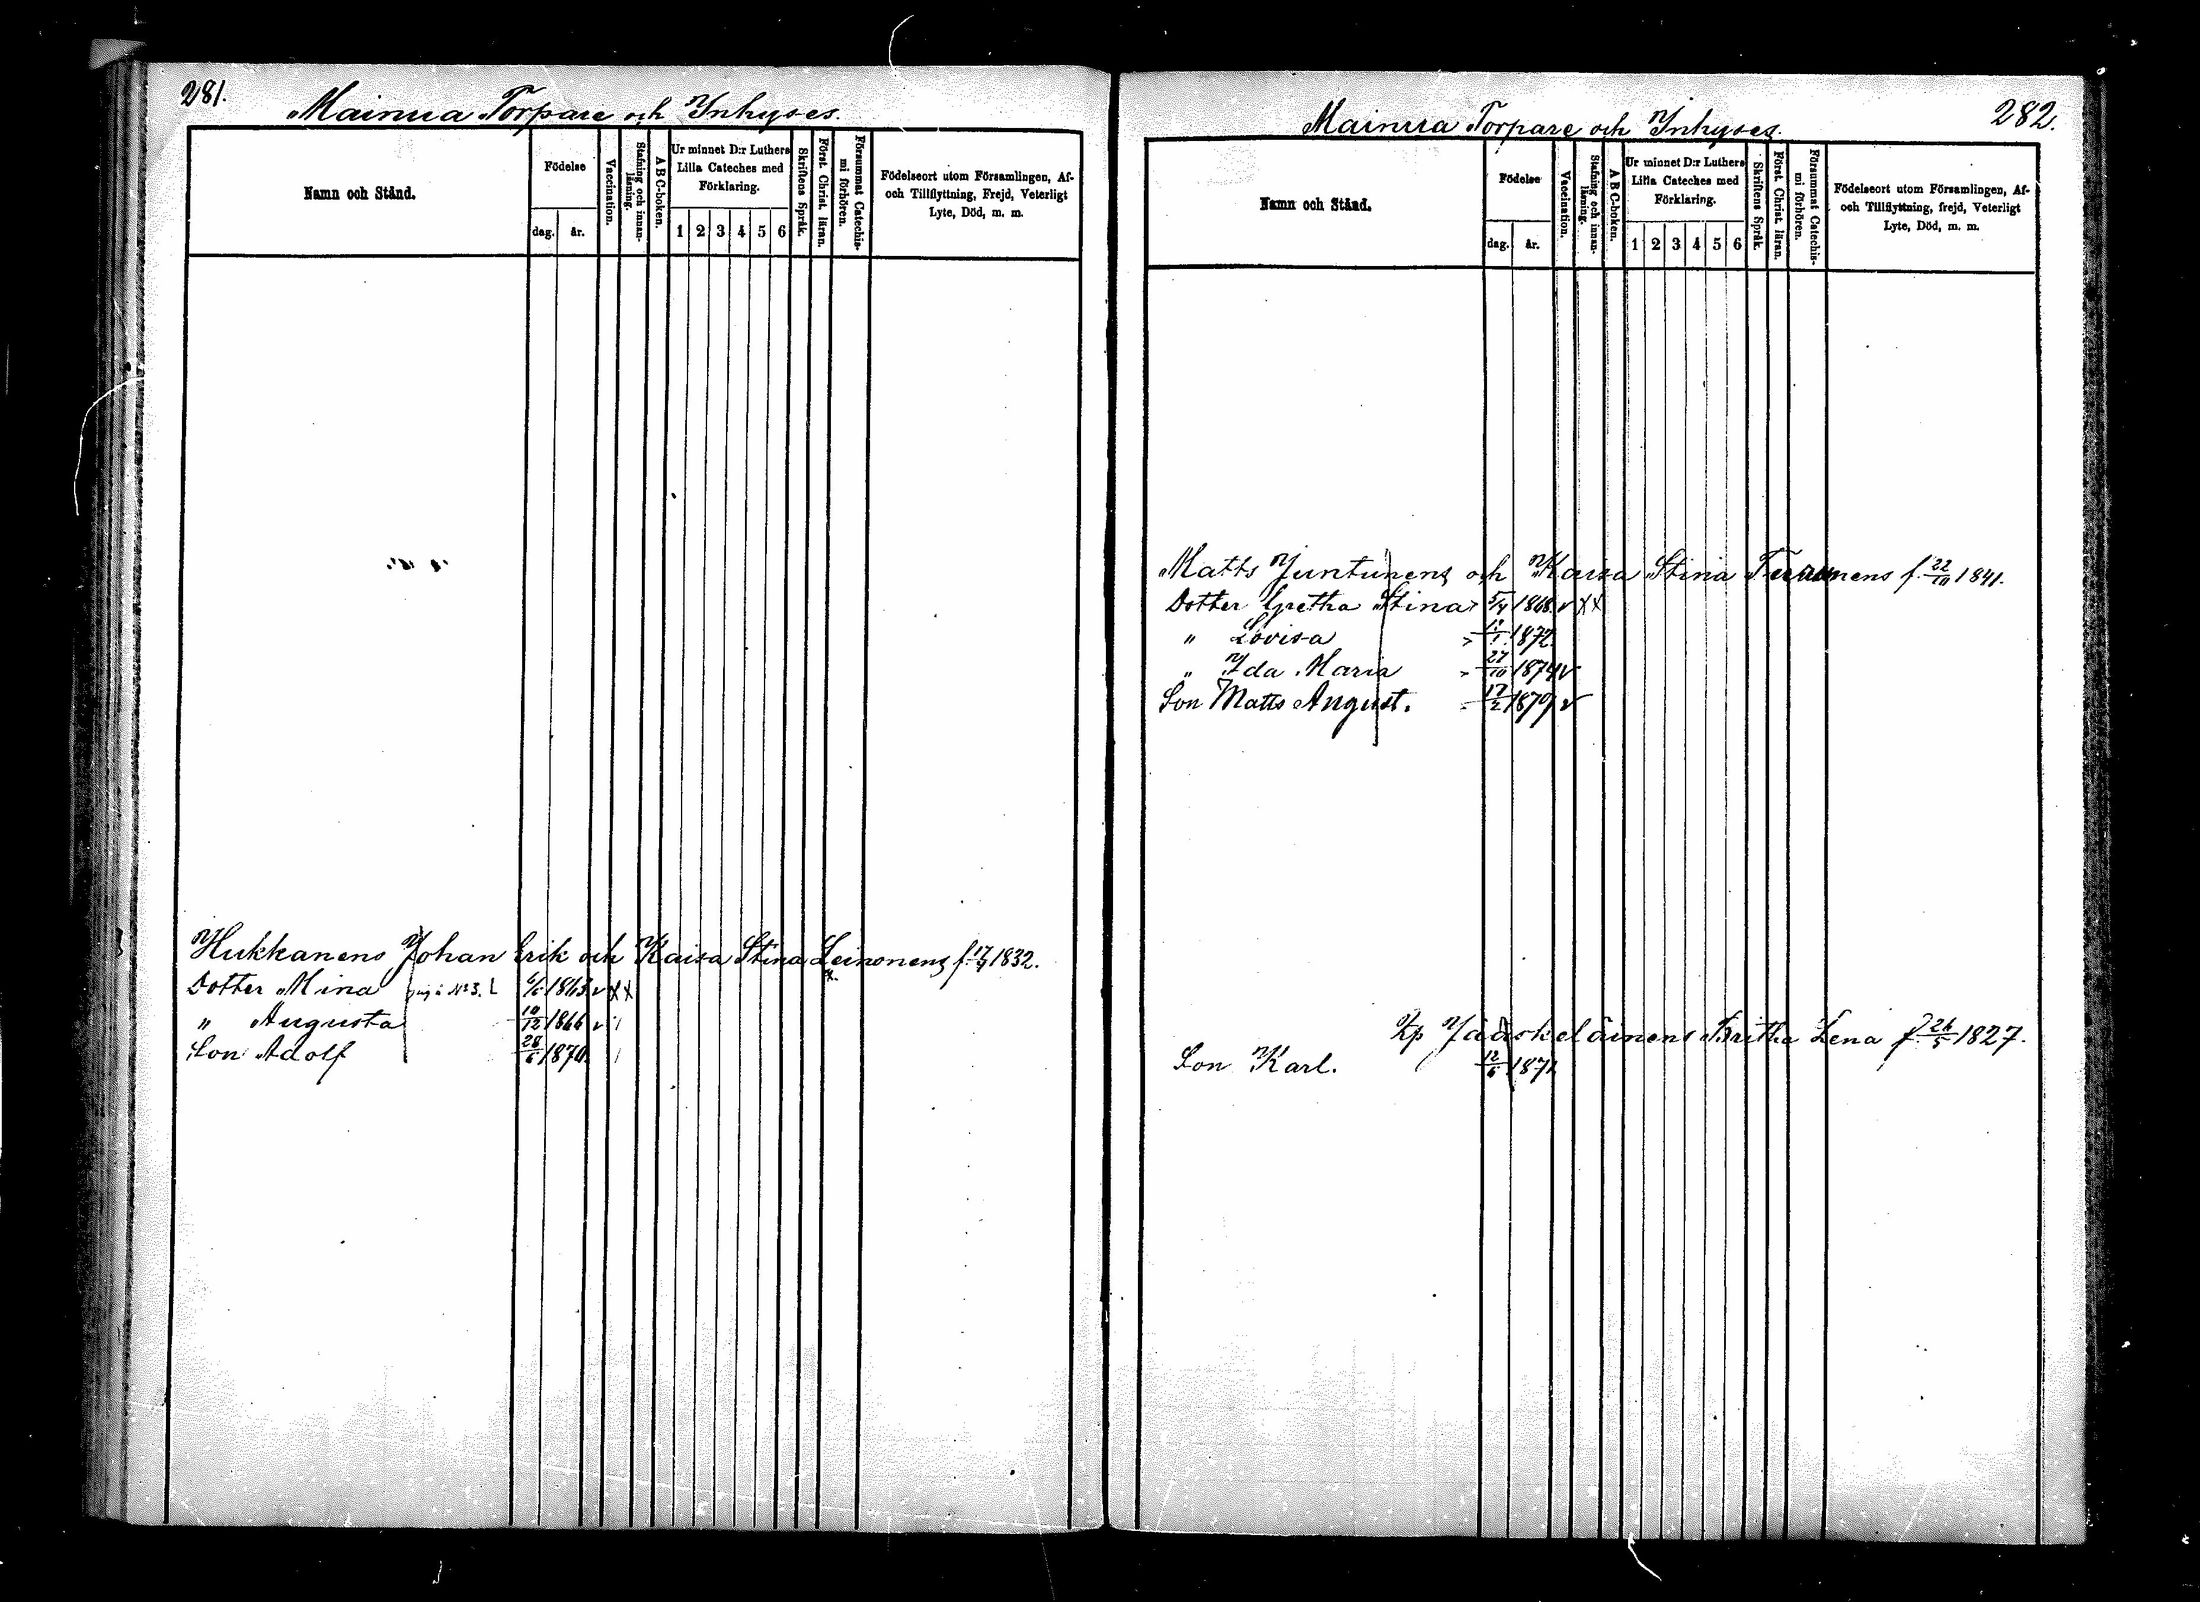 281.
Mainua Torpare och Inhyses.
Namn och Stånd.
Födelse
dag.
år.
Vaccination.
Stafning och innan-läsning.
A B C-boken.
Ur minnet D:r Luthers
Lilla Cateches med
Förklaring.
1 2 3 4 5 6
Skriftens Språk.
Först. Christ. läran.
Försummat Catechis-
mi förhören.
Födelseort utom Församlingen, Af-
och Tillflyttning, Frejd, Veterligt
Lyte, Död, m. m.
Hukkanens Johan Erik och Kaisa Stina Leinonens f. 17/9 1832.
Dotter Mina № 3. 1863 v x x
" Augusta 10/12 1866 v
Son Adolf 28/6 1870
282.
Mainua Torpare och Inhyses.
Namn och Stånd.
Födelse
dag.
år.
Vaccination.
Stafning och innan-läsning.
A B C-boken.
Ur minnet D:r Luthers
Lilla Cateches med
Förklaring.
1 2 3 4 5 6
Skriftens Språk.
Först. Christ. läran.
Försummat Catechis-
mi förhören.
Födelseort utom Församlingen, Af-
och Tillflyttning, frejd, Veterligt
Lyte, Död, m. m.
Matts Juntunens och Kaisa Stina f. 22/10 1841.
Dotter Gretha Stina 5/4 1868 v x x
" Lovisa 1872
" Ida Maria 27/10 1874 v
Son Matts August. 17/2 1879 v
Jääskeläinens Britha Lena f. 26/5 1827.
Son Karl. 12/6 1871